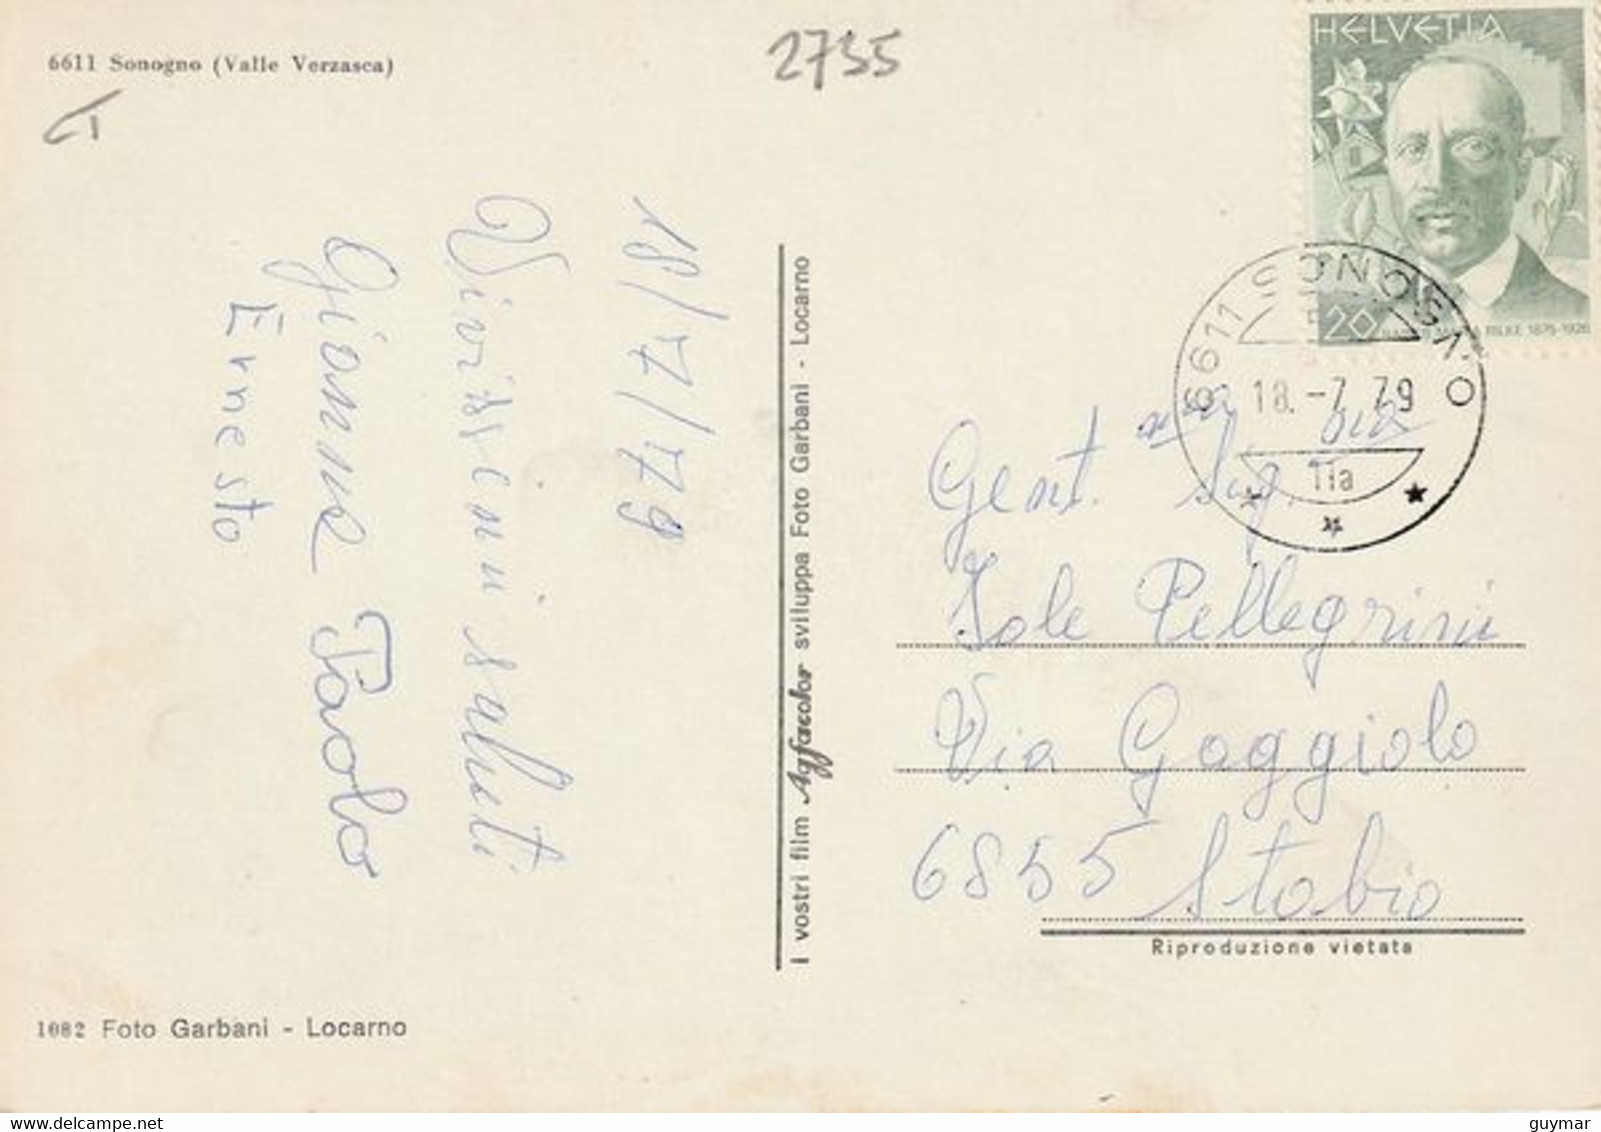 6611 Sonogno (Valle Verzasca)
2735
HELVETIA
20
RILKE 1875-1926
6611 SONOGNO
18.-7.79
18/7/79
Vivissimi saluti
Gianna Paolo
Ernesto
I vostri film Agfacolor sviluppa Foto Garbani - Locarno
Gent. Sig.
Iole Pellegrini
Via Gaggiolo
6855 Stabio
Riproduzione vietata
1082 Foto Garbani - Locarno
delcampe.net
guymar